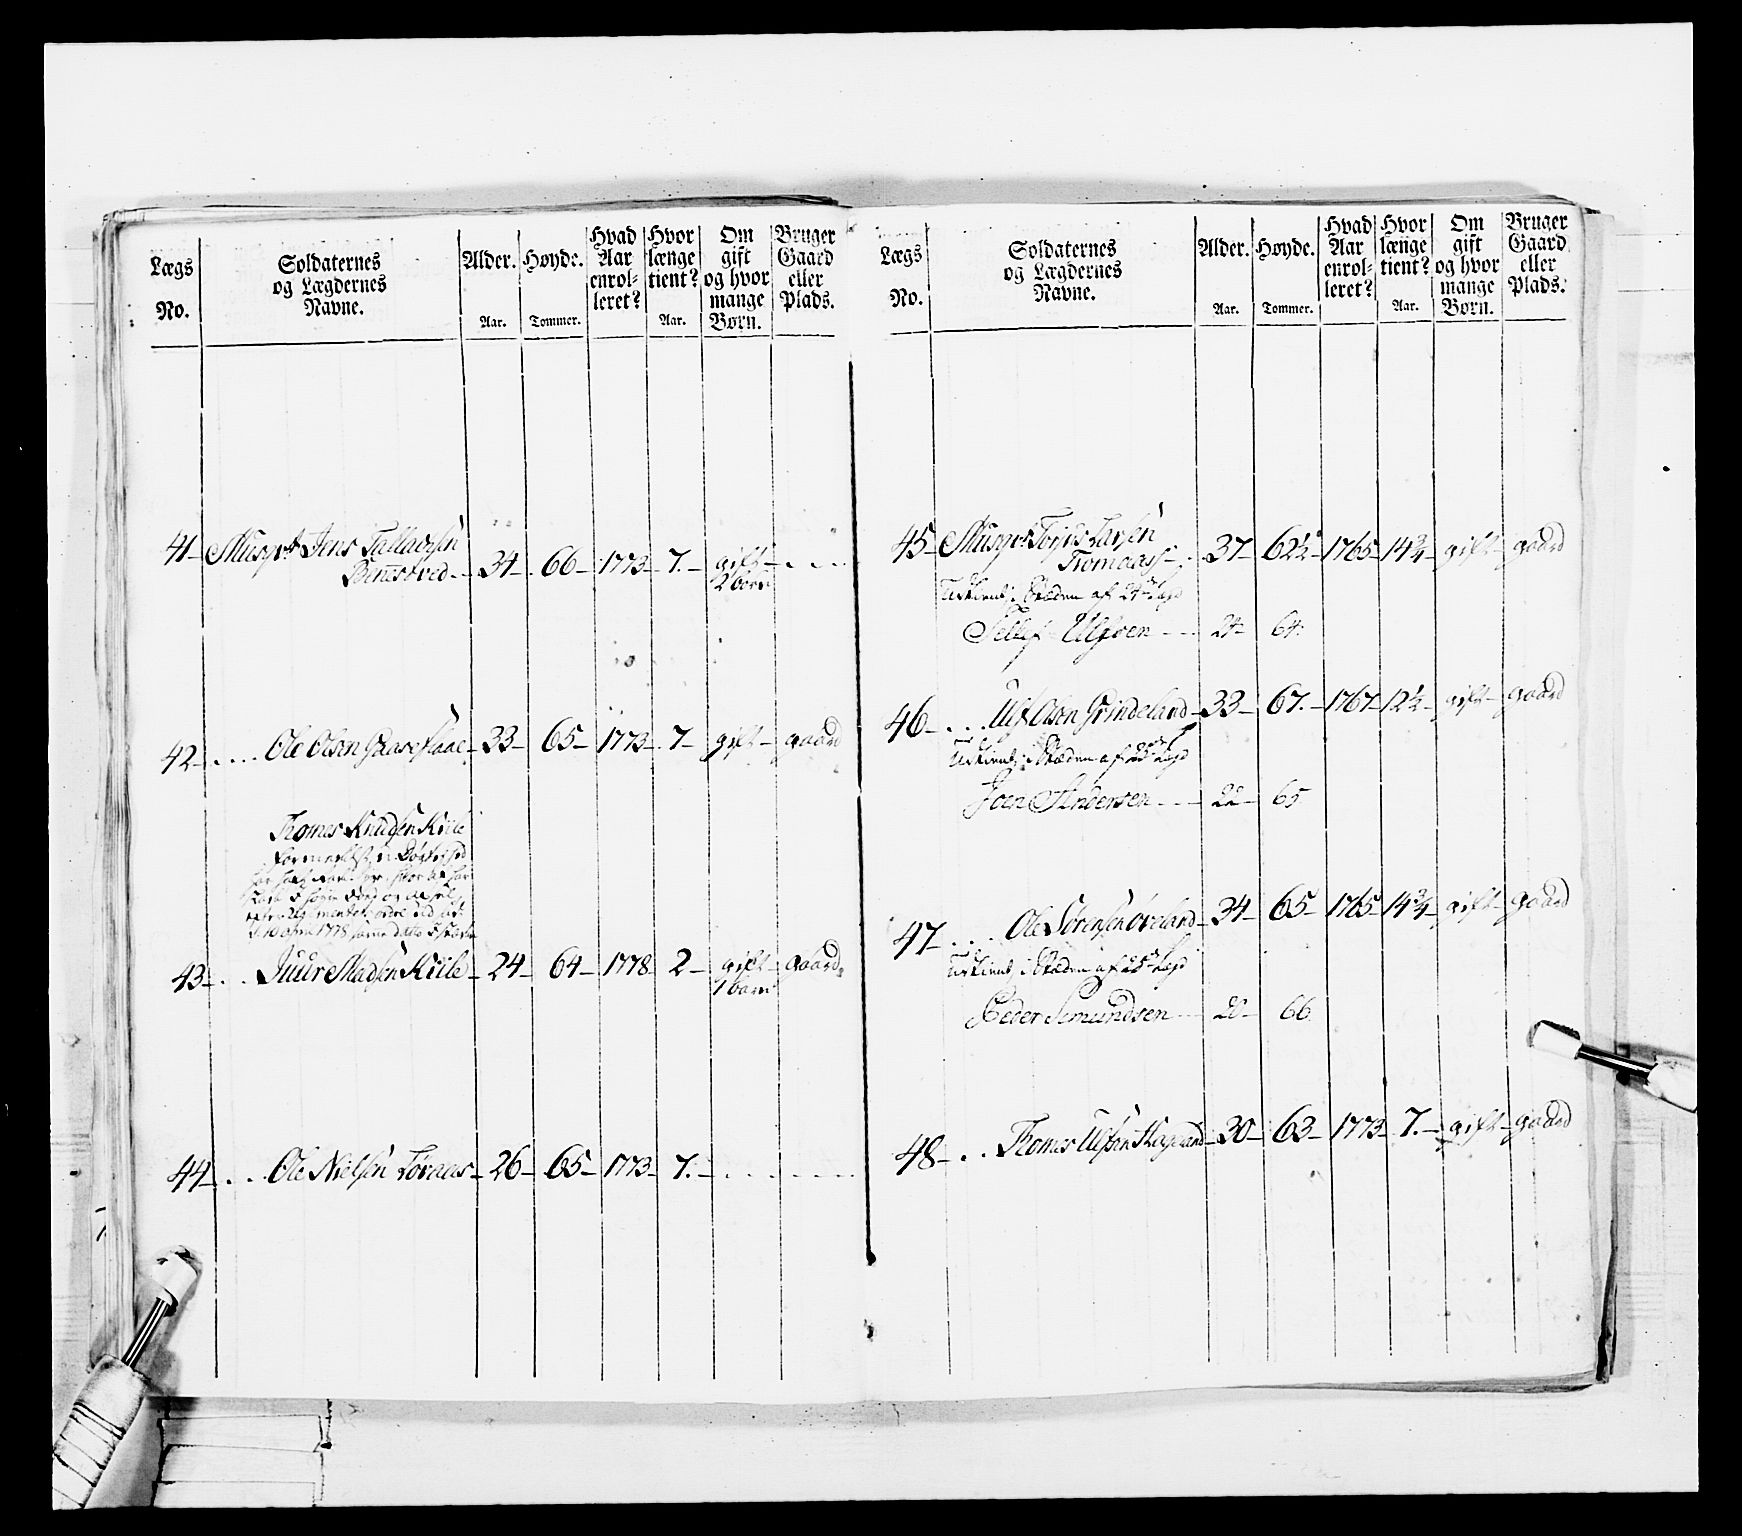 Lægs
No.
Soldaternes
og Lægdernes
Navne.
Alder.
Aar.
Høyde.
Tommer.
Hvad
Aar
enrol-
leret?
Hvor
længe
tient?
Aar.
Om
gift
og hvor
mange
Børn.
Bruger
Gaard
eller
Plads.
41 Musqvt Jens Tallachsen
Benestved 34 66 1773 7. gift
2 børn
42 Ole Olsen Graveflaae 33 65 1773 7 gift gaard
Tromes Knudsen Kiile
43 Juur Madsen Kiile 24 64 1778 2 gift gaard
1 barn
44 Ole Nielsen Toraas 26 65 1773 7.
Lægs
No.
Soldaternes
og Lægdernes
Navne.
Alder.
Aar.
Høyde.
Tommer.
Hvad
Aar
enrol-
leret?
Hvor
længe
tient?
Aar.
Om
gift
og hvor
mange
Børn.
Bruger
Gaard
eller
Plads.
45 Musqvt Torjus Larsen
Tromaass 37 62½ 1765 14¾ gift gaard
Udtient, i Stæden af 24de Lægd
Tellef Ulfsen 24 64
46 Ulf Olsen Grindeland 33 67. 1767 12½ gift gaard
Udtient, i Stæden af 25de Lægd
Joen Andersen 22 65
47 Ole Sørensen Øveland 34 65 1765 14¾ gift gaard
Udtient, i Stæden af 25de Lægd
Peder Semundsen 20 66
48 Thomes Ulfsen Skogland 30 63 1773 7. gift gaard